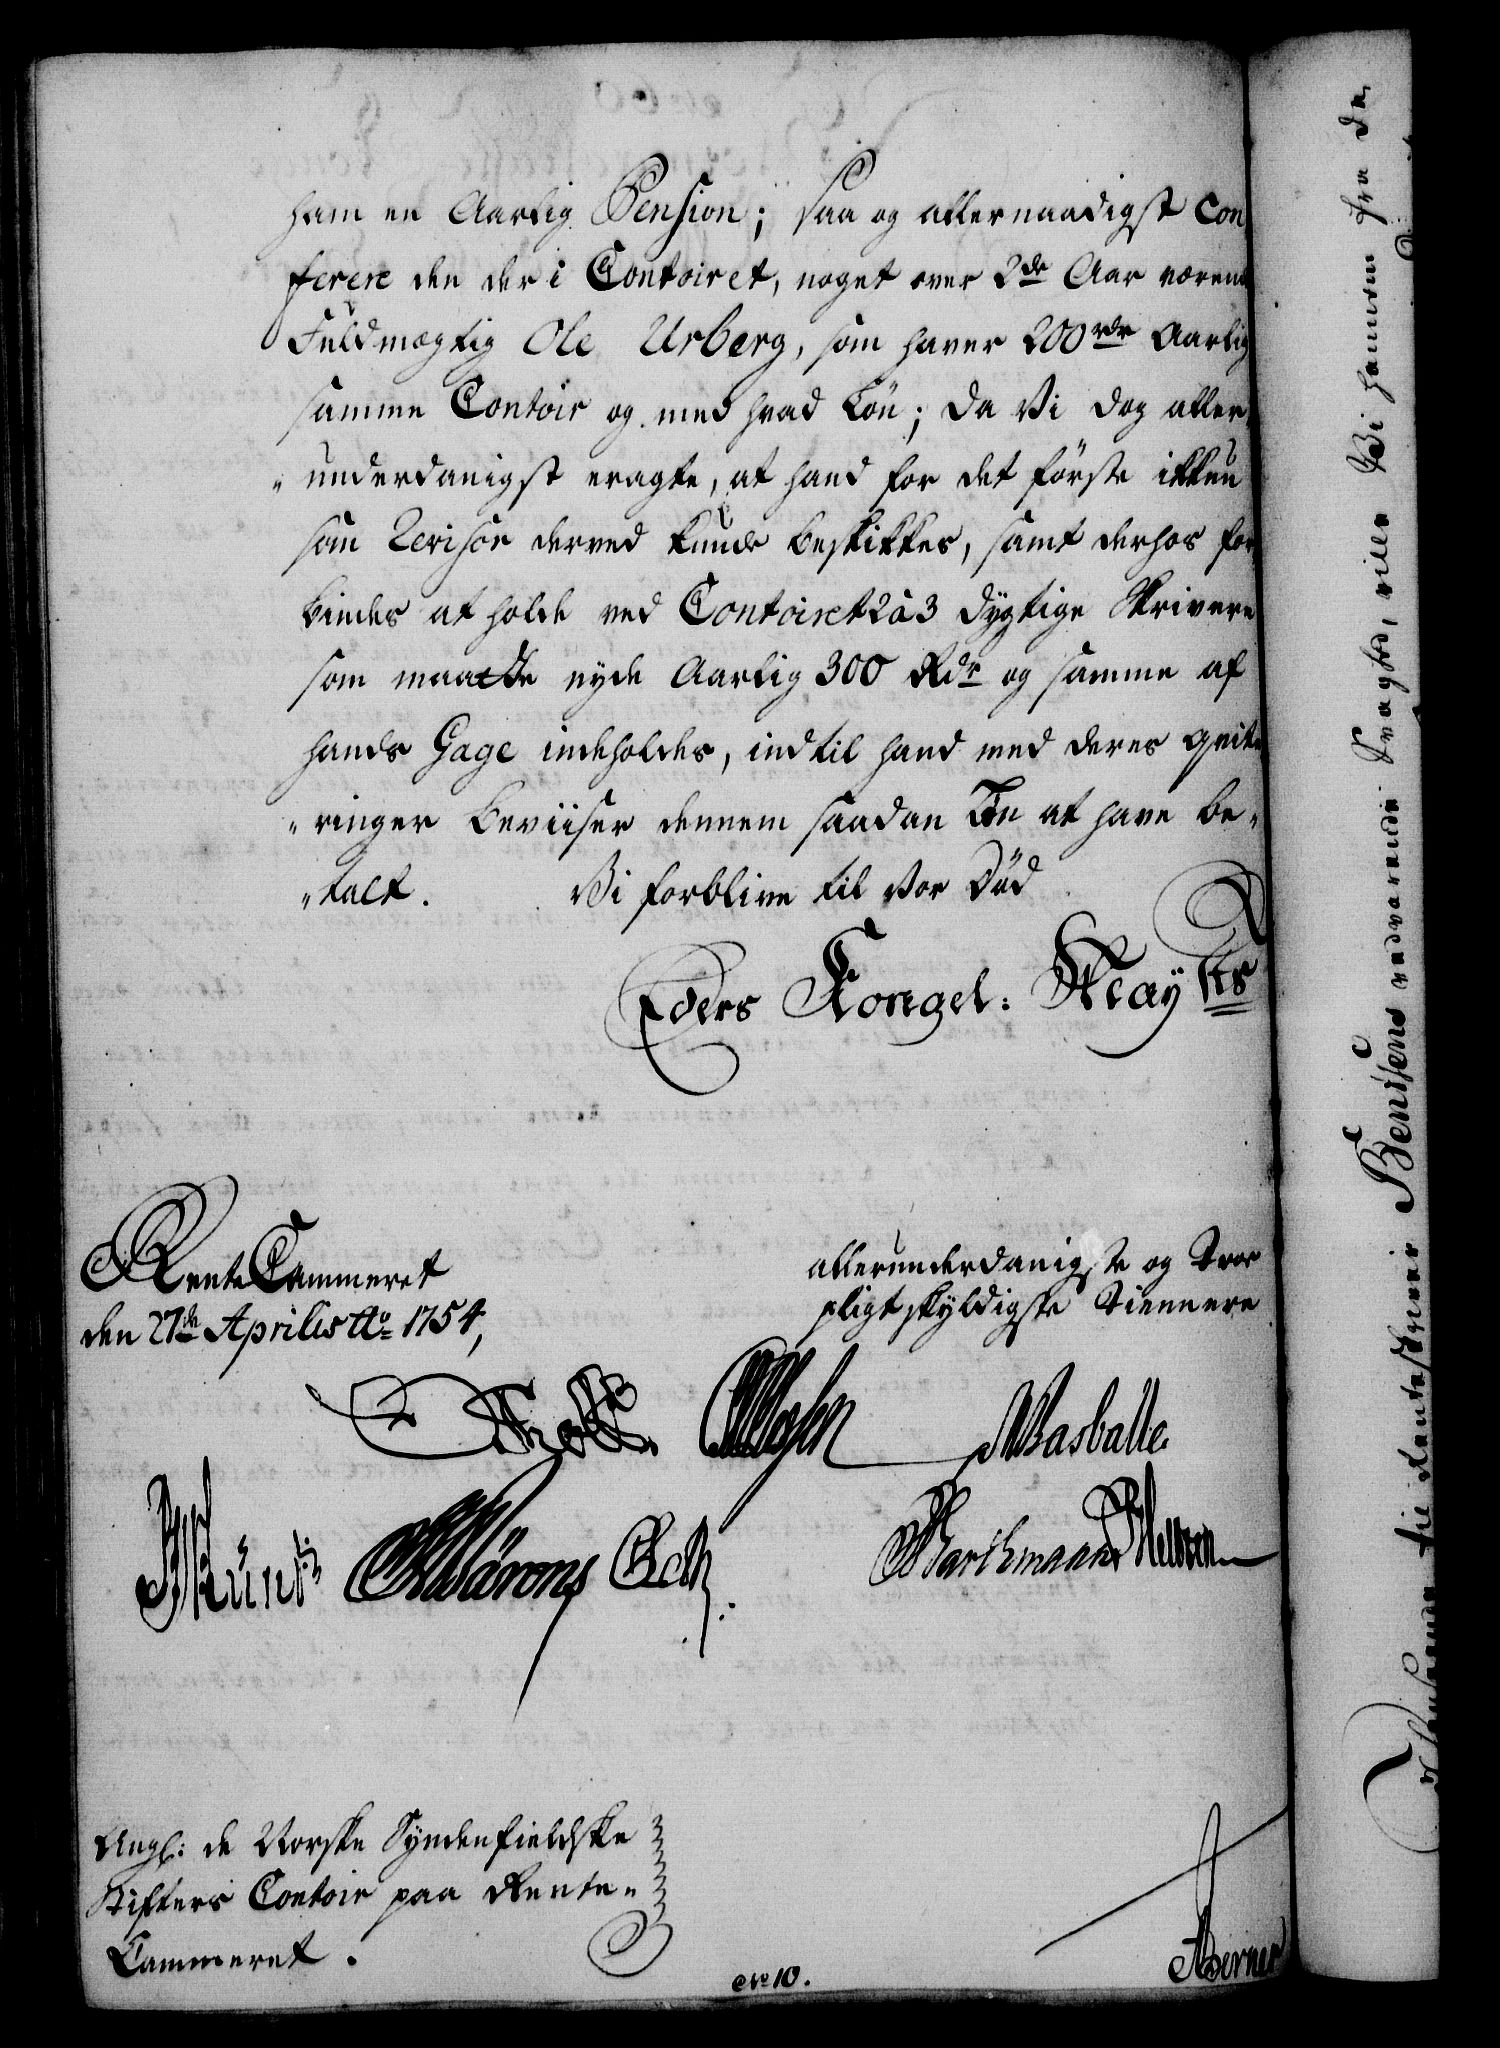 ham en Aarlig Pension; saa og allernaadigst Con
ferere den der i Contoiret, noget over 2de Aar værend
Fuldmegtig Ole Urberg, som haver 200 rdr Aarlig
samme Contoir og med hvad Løn; Da Vi dog aller-
"underdanigst eragte, at hand for det første ikkun
som Revisor derved kunde beskikkes, samt derhos for
bindes at holde ved Contoiret 2 à 3 dygtige Skrivere
som maatte nyde Aarlig 300 Rdr og samme af
hands Gage indeholdes, indtil hand med deres qvite
"ringer beviiser dennem saadan Løn at have be-
"talt. Vi forblive til vor Død
Eders Kongel: Mayts
Rente Cammeret
den 27de Aprilis Ao 1754,
allerunderdanigste og Troe
pligtskyldigste Tiennere
Holck
Masballe
Barthmann
Angl: de Norske Syndenfieldske
Stifters Contoir paa Rente-
Cammeret.
No 10.
Berner
Vi hannem fra de
Svaghed, ville
Bentsens nedværende
til Renteskriver